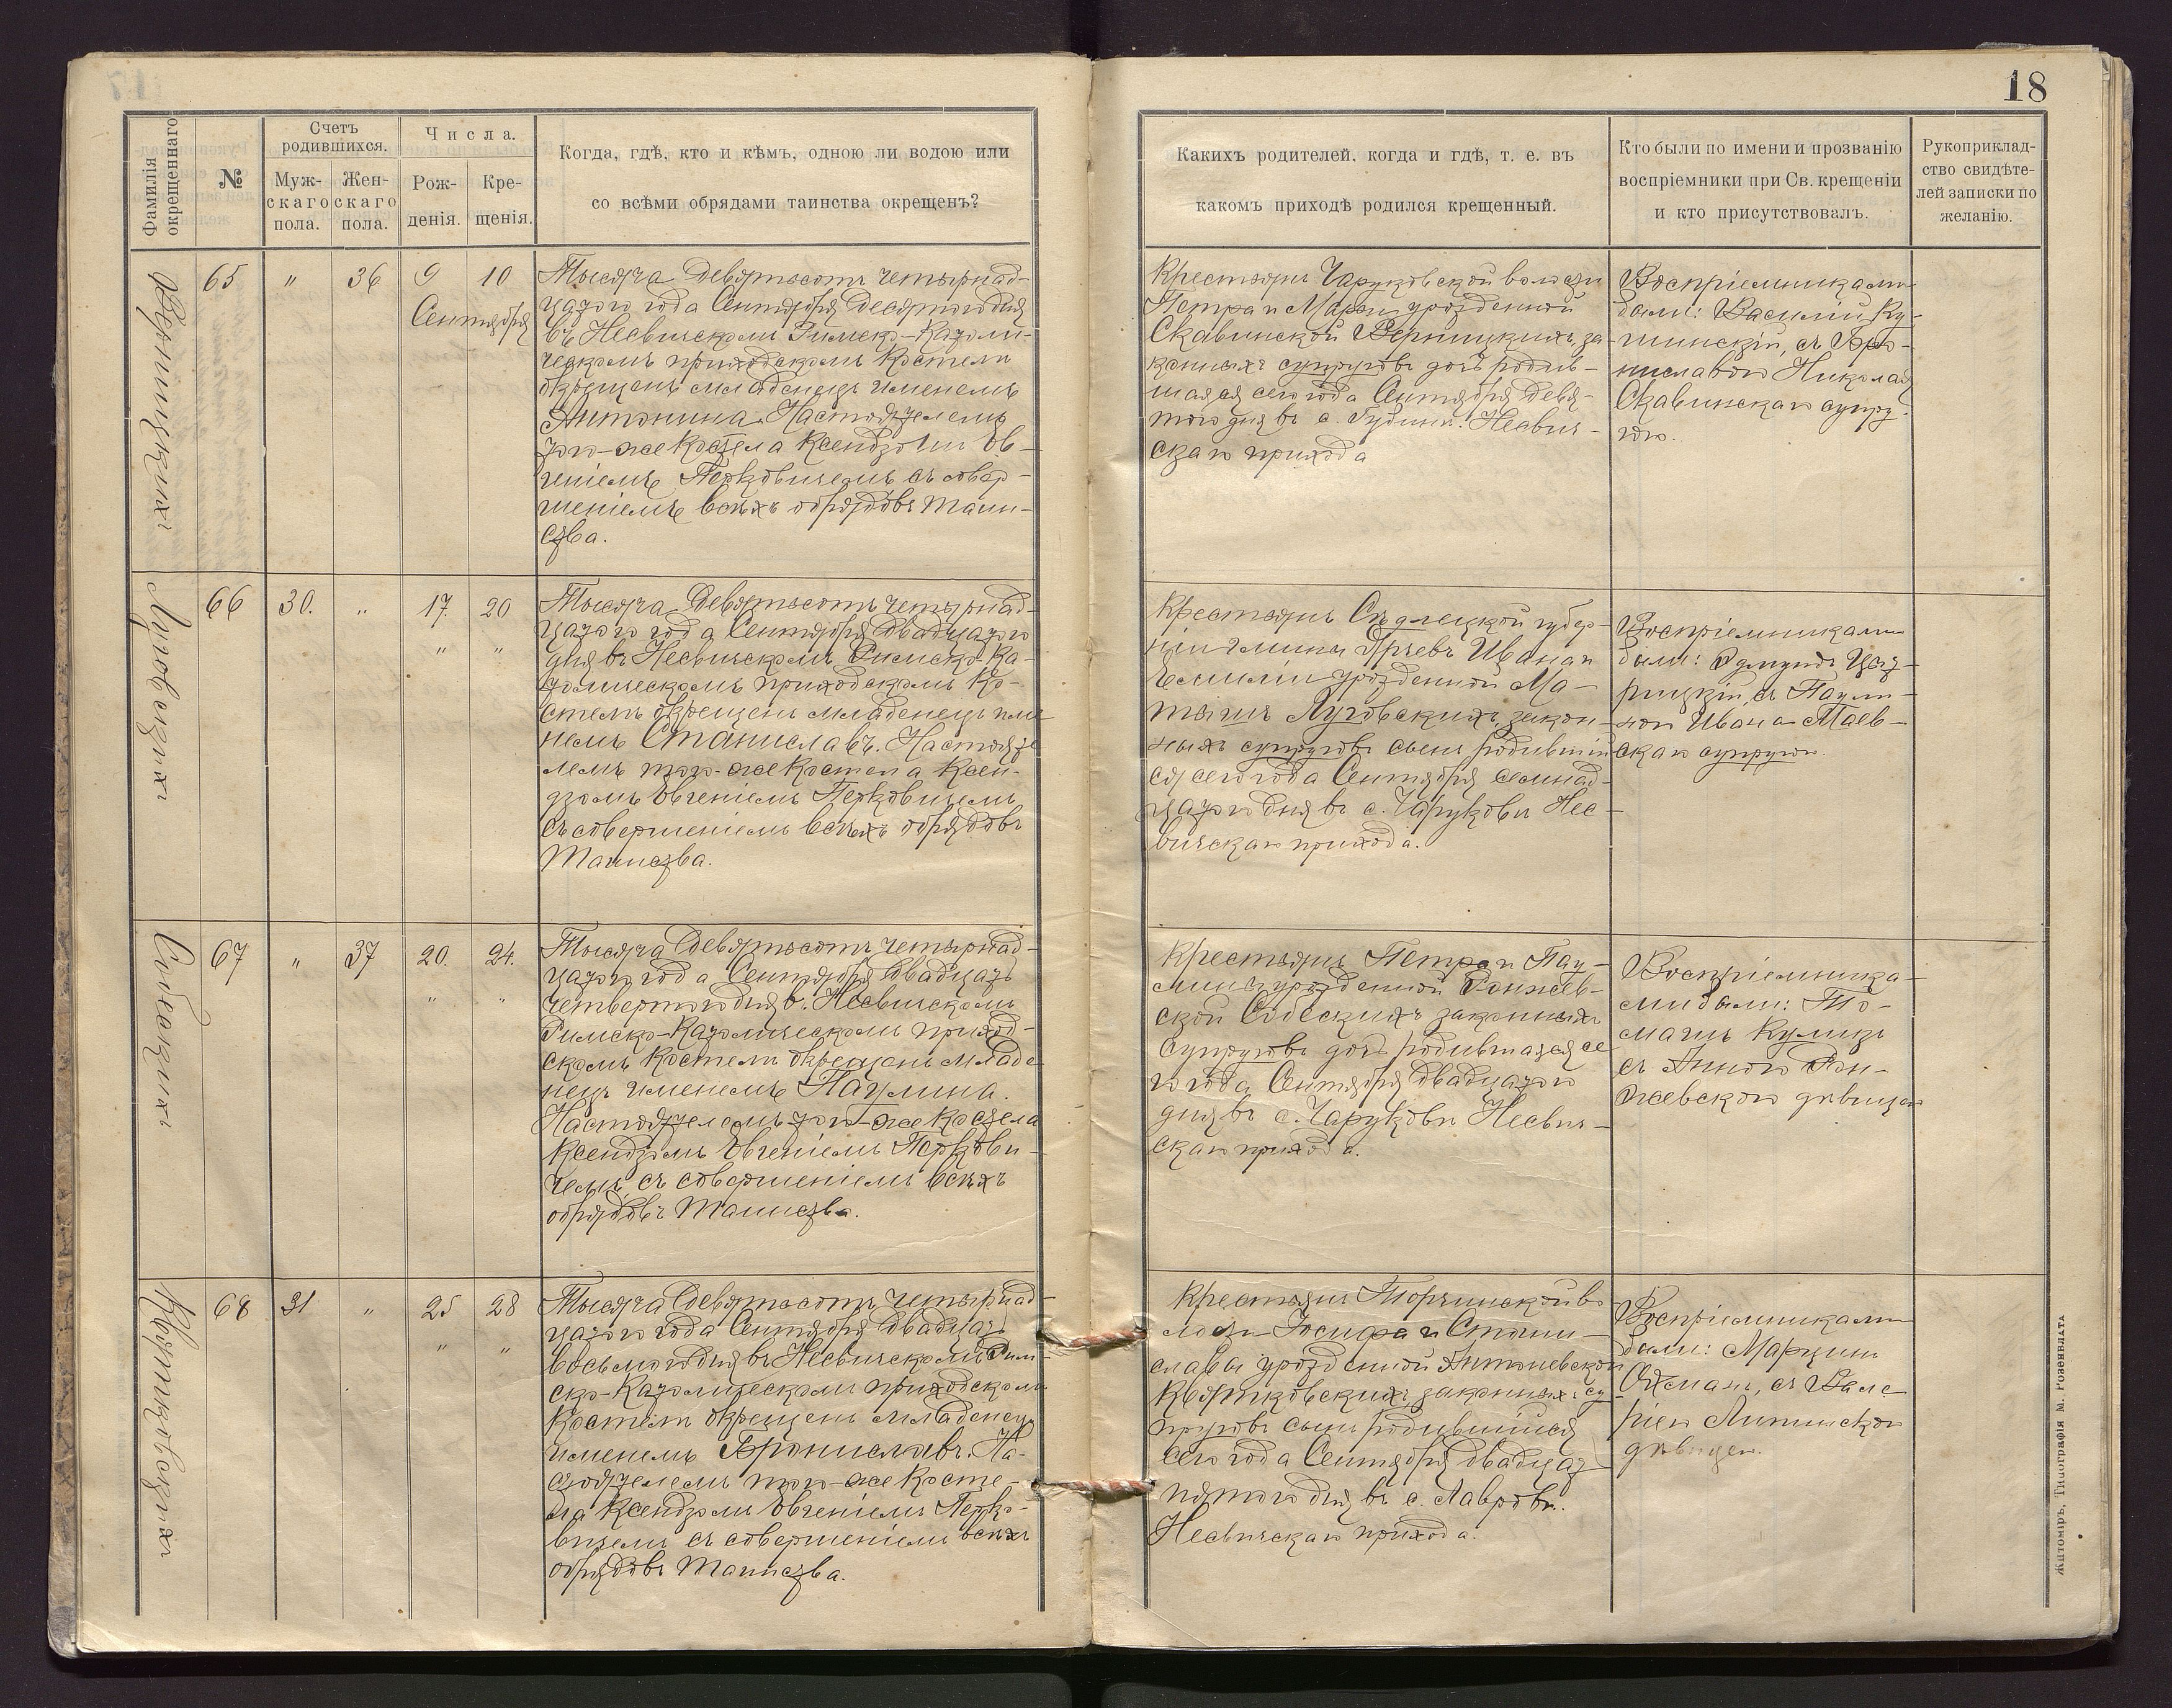 18
Фамилія окрещеннаго
№
Счетъ родившихся.
Мужскаго пола.
Женскаго пола.
Числа.
Рожденія.
Крещенія.
Когда, гдѣ, кто и кѣмъ, одною ли водою или
со всѣми обрядами таинства окрещенъ?
Какихъ родителей, когда и гдѣ, т. е. въ
какомъ приходѣ родился крещенный.
Кто были по имени и прозванію
воспріемники при Св. крещеніи
и кто присутствовалъ.
Рукоприклад-
ство свидѣте-
лей записки по
желанію.
Верницкихъ
65 " 36 9 10
Сентября
Тысяча девятьсотъ четырнад-
цатого года Сентября десятого дня
въ Несвичскомъ Римско-Католи-
ческомъ приходскомъ костелѣ
окрещенъ младенецъ именемъ
Антонина. Настоятелемъ
того-же костела Ксендзомъ Ев-
геніемъ Перковичемъ съ совер-
шеніемъ всѣхъ обрядовъ Таин-
ства.
Крестьянъ Чаруковской волости
Петра и Маріи урожденной
Скавинской Верницкихъ, за-
конныхъ супруговъ дочь родив-
шаяся сего года Сентября девя-
того дня въ с. Несвич-
скаго прихода
Воспріемниками
были: Василій Ку-
чинскій, съ Бро-
ниславою Николая
Скавинскаго супру-
гою.
Луговскихъ
66 30. " 17. 20
" "
Тысяча девятьсотъ четырнад-
цатого года Сентября двадцатого
дня въ Несвичскомъ Римско-Ка-
толическомъ приходскомъ ко-
стелѣ окрещенъ младенецъ име-
немъ Станиславъ. Настояте-
лемъ того-же костела Ксен-
дзомъ Евгеніемъ Перковичемъ
съ совершеніемъ всѣхъ обрядовъ
Таинства.
Крестьянъ Сѣдлецкой губер-
ніи гмины Ивана и
Емиліи урожденной Ма-
Луговскихъ, закон-
ныхъ супруговъ сынъ родившій-
ся сего года Сентября семнад-
цатого дня въ с. Чаруковѣ Нес-
вичскаго прихода.
Воспріемниками
были: Эдмундъ
съ Паули-
ной Ивана Маев-
скаго супругою.
Собескихъ
67 " 37 20. 24.
" "
Тысяча девятьсотъ четырнад-
цатого года Сентября двадцать
четвертого дня въ Несвичскомъ
Римско-Католическомъ приход-
скомъ костелѣ окрещенъ младе-
нецъ именемъ Паулина.
Настоятелемъ того-же костела
Ксендзомъ Евгеніемъ Перкови-
чемъ, съ совершеніемъ всѣхъ
обрядовъ Таинства.
Крестьянъ Петра и Пау-
лины урожденной Ронжев-
ской Собескихъ законныхъ
супруговъ дочь родившаяся се-
го года Сентября двадцатого
дня въ с. Чаруковѣ Несвич-
скаго прихода.
Воспріемника-
ми были: То-
машъ Куликъ
съ Анною Рон-
жевскою дѣвицею
Квятковскихъ
68 31 " 25 28
" "
Тысяча девятьсотъ четырнад-
цатого года Сентября двадцать
восьмого дня въ Несвичскомъ Рим-
ско-Католическомъ приходскомъ
костелѣ окрещенъ младенецъ
именемъ Брониславъ. На-
стоятелемъ того-же косте-
ла Ксендзомъ Евгеніемъ Перко-
вичемъ съ совершеніемъ всѣхъ
обрядовъ Таинства.
Крестьянъ Торчинской во-
лости Іосифа и Стани-
славы урожденной Антоневской
Квятковскихъ, законныхъ су-
пруговъ сынъ родившійся
сего года Сентября двадцать
пятого дня въ с. Лавровѣ.
Несвичскаго прихода.
Воспріемниками
были: Марцинъ
съ Вале-
ріею Липинскою
дѣвицею.
Житоміръ, Типографія М. Розенблата